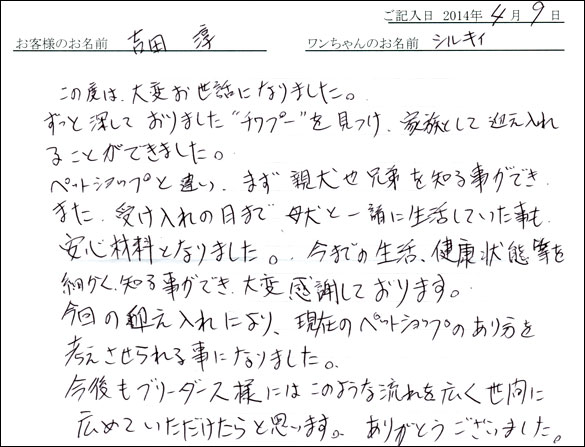 ご記入日 2014年 4月 9日
お客様のお名前 吉田 淳 ワンちゃんのお名前 シルキィ
この度は、大変お世話になりました。
ずっと深しておりました"チワプー"を見つけ、家族として迎え入れ
ることができました。
ペットショップと違い、まず親犬や兄弟を知る事ができ、
また、受け入れの日まで母犬と一諸に生活していた事も、
安心材料となりました。今までの生活、健康状態等を
細かく知る事ができ、大変感謝しております。
今回の迎え入れにより、現在のペットショップのあり方を
考えさせられる事になりました。
今後もブリーダーズ様にはこのような流れを広く世間に
広めていただけたらと思います。ありがとうございました。